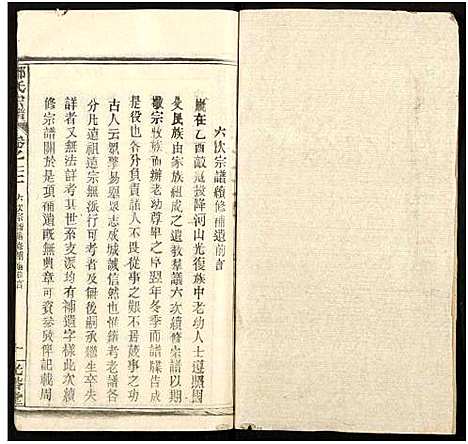 六次宗譜續修補遺前言
歲在乙酉敵寇投降河山光復族中老幼人士遵照國
父民族由家族組成之遺教羣議六次續修宗譜以期
敬宗收族而辦老幼尊卑之序翌年冬季而譜牒告成
良由負責諸人不畏從事之艱不甚歲事之功
古人云眾擎易舉眾志成城誠信然也惟續考老譜各
分凡遠祖遠宗無派行可考者及無後嗣承繼生卒失
詳者又無法詳考其世系支派均有補遺字樣此次續
修宗譜關於是項補遺既無典章可資參攷俾記載周
氏宗譜
卷之三
六次宗譜續修補遺前言
一
光裕堂